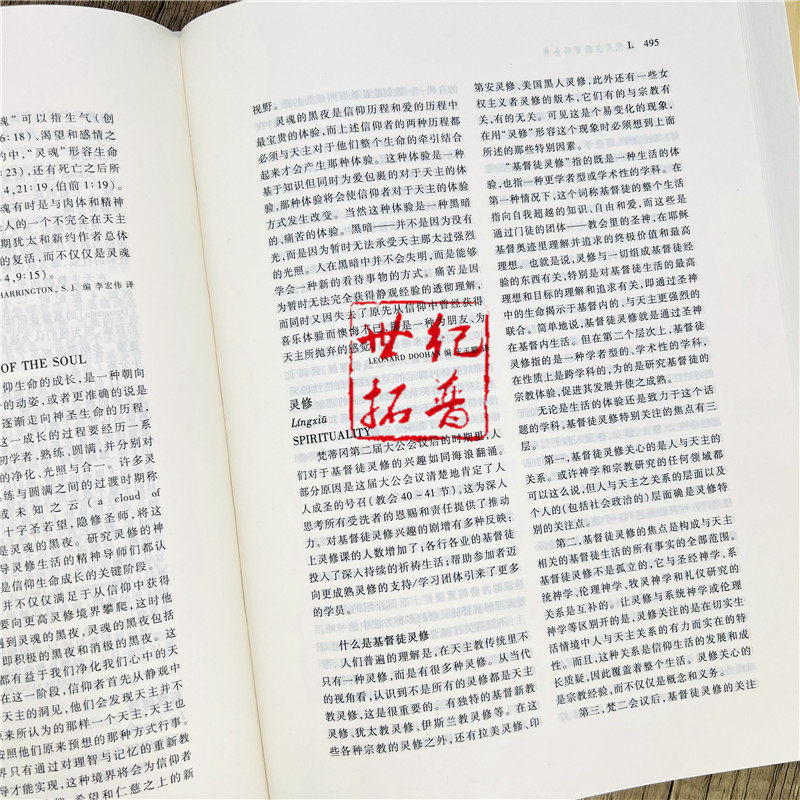 魂”可以指生气（创
6:18）、渴望和感情之
的中，“灵魂”形容生命
:23），还有死亡之后所
4,21:19，伯前 1:19）。
魂有时是与肉体和精神
是人的一个不完全在天主
期犹太和新约作者总体
的复活，而不仅仅是灵魂
-4,9:15）。
HARRINGTON, S.J. 编 李宏伟 译
OF THE SOUL
仰生命的成长，是一种朝向
的动姿，或者更准确的说是
逐渐走向神圣生命的历程，
这一成长的过程要经历一系
初学者、熟练、圆满，并分别对
的净化、光照与合一。许多灵
练与圆满之间的过渡时期称
或未知之云 (a cloud of
十字圣若望，隐修圣师，将这
是灵魂的黑夜。研究灵修的神
导灵修生活的精神导师们都认
是信仰生命成长的关键阶段。
并不仅仅满足于从信仰中获得
要向更高灵修境界攀爬，这时他
遇到灵魂的黑夜，灵魂的黑夜包括
即积极的黑夜和消极的黑夜。这
都有益于我们净化我们心中的天
在这一阶段，信仰者首先从静观中
天主的洞见，他们会发现天主并不
原来所认为的那样一个天主，天主也
按照他们原来预想的那种方式行事。
界只有通过对理智与记忆的重新教
导才能实现，这种境界将会为信仰者
希望和仁慈之上的新
L 495
视野。
灵魂的黑夜是信仰历程和爱的历程中
最宝贵的体验，而上述信仰者的两种历程都
必须与天主对于他们整个生命的牵引结合
起来才会产生那种体验。这种体验是一种
基于知识但同时为爱包裹的对于天主的体
验，那种体验将会使信仰者对于天主的体验
方式发生改变。当然这种体验是一种黑暗
的、痛苦的体验。黑暗——并不是因为没有
光，而是因为暂时无法承受天主那太过强烈
的光照。人在黑暗中并不会失明，而是能够
学会一种新的看待事物的方式。痛苦是因
为暂时无法完全获得静观经验的透彻理解，
而同时又因失去了原先从信仰中曾经获得
喜乐体验而懊悔不已，那是一种为朋友、为
天主所抛弃的感觉。
LEONARD DOOHAN 编 译
灵修
Língxiū
SPIRITUALITY
梵蒂冈第二届大公会议后的时期里，人
们对于基督徒灵修的兴趣如同海浪翻涌。
部分原因是这届大公会议清楚地肯定了人
人成圣的号召（教会 40-41 节），这为深入
思考所有受洗者的恩赐和责任提供了推动
力。对基督徒灵修兴趣的剧增有多种反映：
上灵修课的人数增加了；各行各业的基督徒
投入了深入持续的祈祷生活；帮助参加者迈
向更成熟灵修的支持/学习团体引来了更多
的学员。
什么是基督徒灵修
人们普遍的理解是，在天主教传统里不
只有一种灵修，而是有很多种灵修。从当代
的视角看，认识到不是所有的灵修都是天主
教灵修，这是很重要的。有独特的基督新教
灵修、犹太教灵修、伊斯兰教灵修等。在这
些各种宗教的灵修之外，还有拉美灵修、印
第安灵修、美国黑人灵修，此外还有一些女
权主义者灵修的版本，它们有的与宗教有
关，有的无关。可见这是个易变化的现象，
在用“灵修”形容这个现象时必须想到上面
所述的那些特别因素。
“基督徒灵修”指的既是一种生活的体
验，也指一种更学者型或学术性的学科。在
第一种情况下，这个词称基督徒的整个生活
指向自我超越的知识、自由和爱，而这些是
通过门徒的团体——教会里的圣神，在耶稣
基督奥迹里理解并追求的终极价值和最高
理想。也就是说，灵修与一切组成基督徒经
验的东西有关，特别是对基督徒生活的最高
理想和目标的理解和追求有关，即通过圣神
中的生命揭示于基督内的、与天主更强烈的
联合。简单地说，基督徒灵修就是通过圣神
在基督内生活。但在第二个层次上，基督徒
灵修指的是一种学者型的、学术性的学科，
在性质上是跨学科的，为的是研究基督徒的
宗教体验，促进其发展并使之成熟。
无论是生活的体验还是致力于这个话
题的学科，基督徒灵修特别关注的焦点有三
层。
第一，基督徒灵修关心的是人与天主的
关系。或许神学和宗教研究的任何领域都
可以这么说，但人与天主之关系的层面以及
个人的（包括社会政治的）层面确是灵修特
别的关注点。
第二，基督徒灵修的焦点是构成与天主
相关的基督徒生活的所有事实的全部范围。
基督徒灵修不是孤立的，它与圣经神学、系
统神学、伦理神学、牧灵神学和礼仪研究的
关系是互补的。让灵修与系统神学或伦理
神学等区别开的是，灵修关注的是在切实生
活情境中人与天主关系的有力而实在的特
性。而且，这种关系是信仰生活的发展和成
长质疑，因此覆盖着整个生活。灵修关心的
是宗教经验，而不仅仅是概念和义务。
第三，梵二会议后，基督徒灵修的关注
世纪
拓普